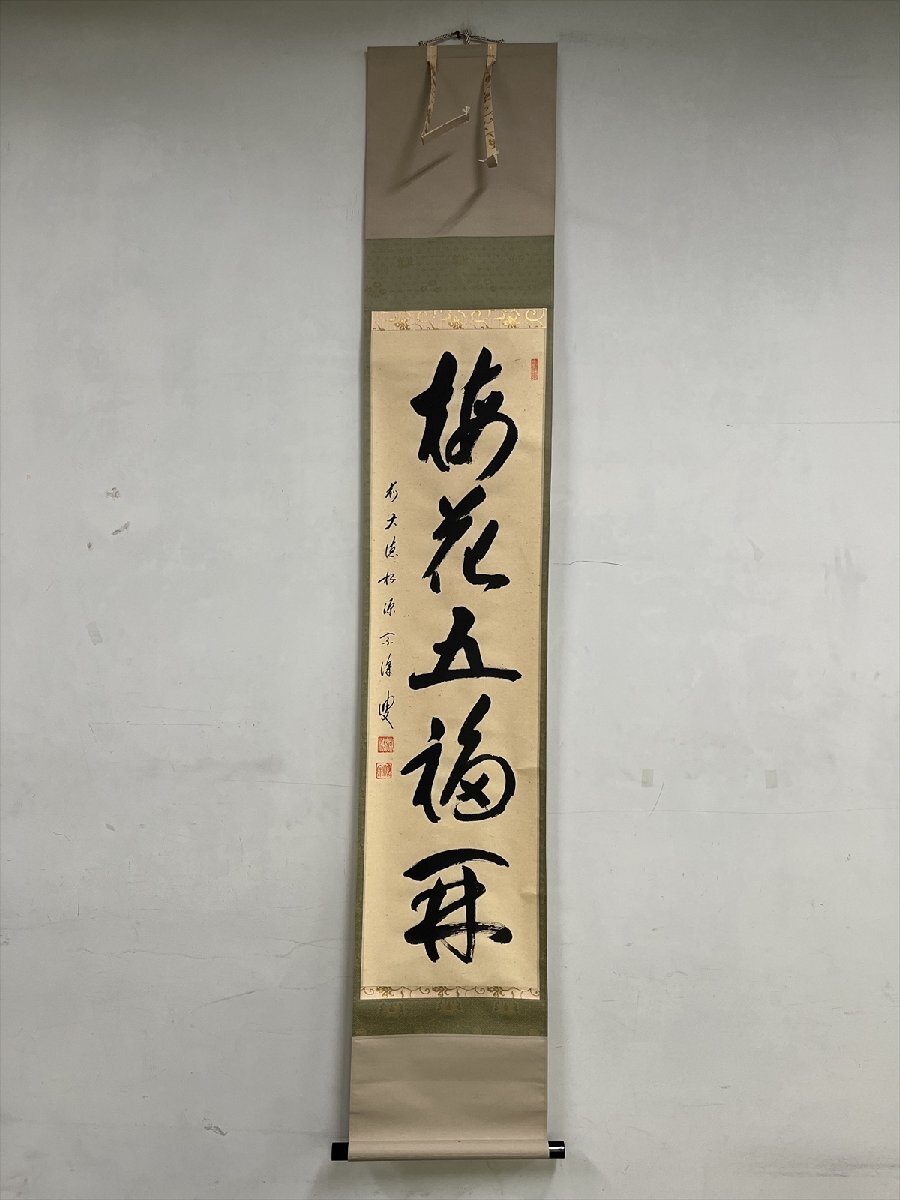 梅花五福開
前大徳松源宗潭叟